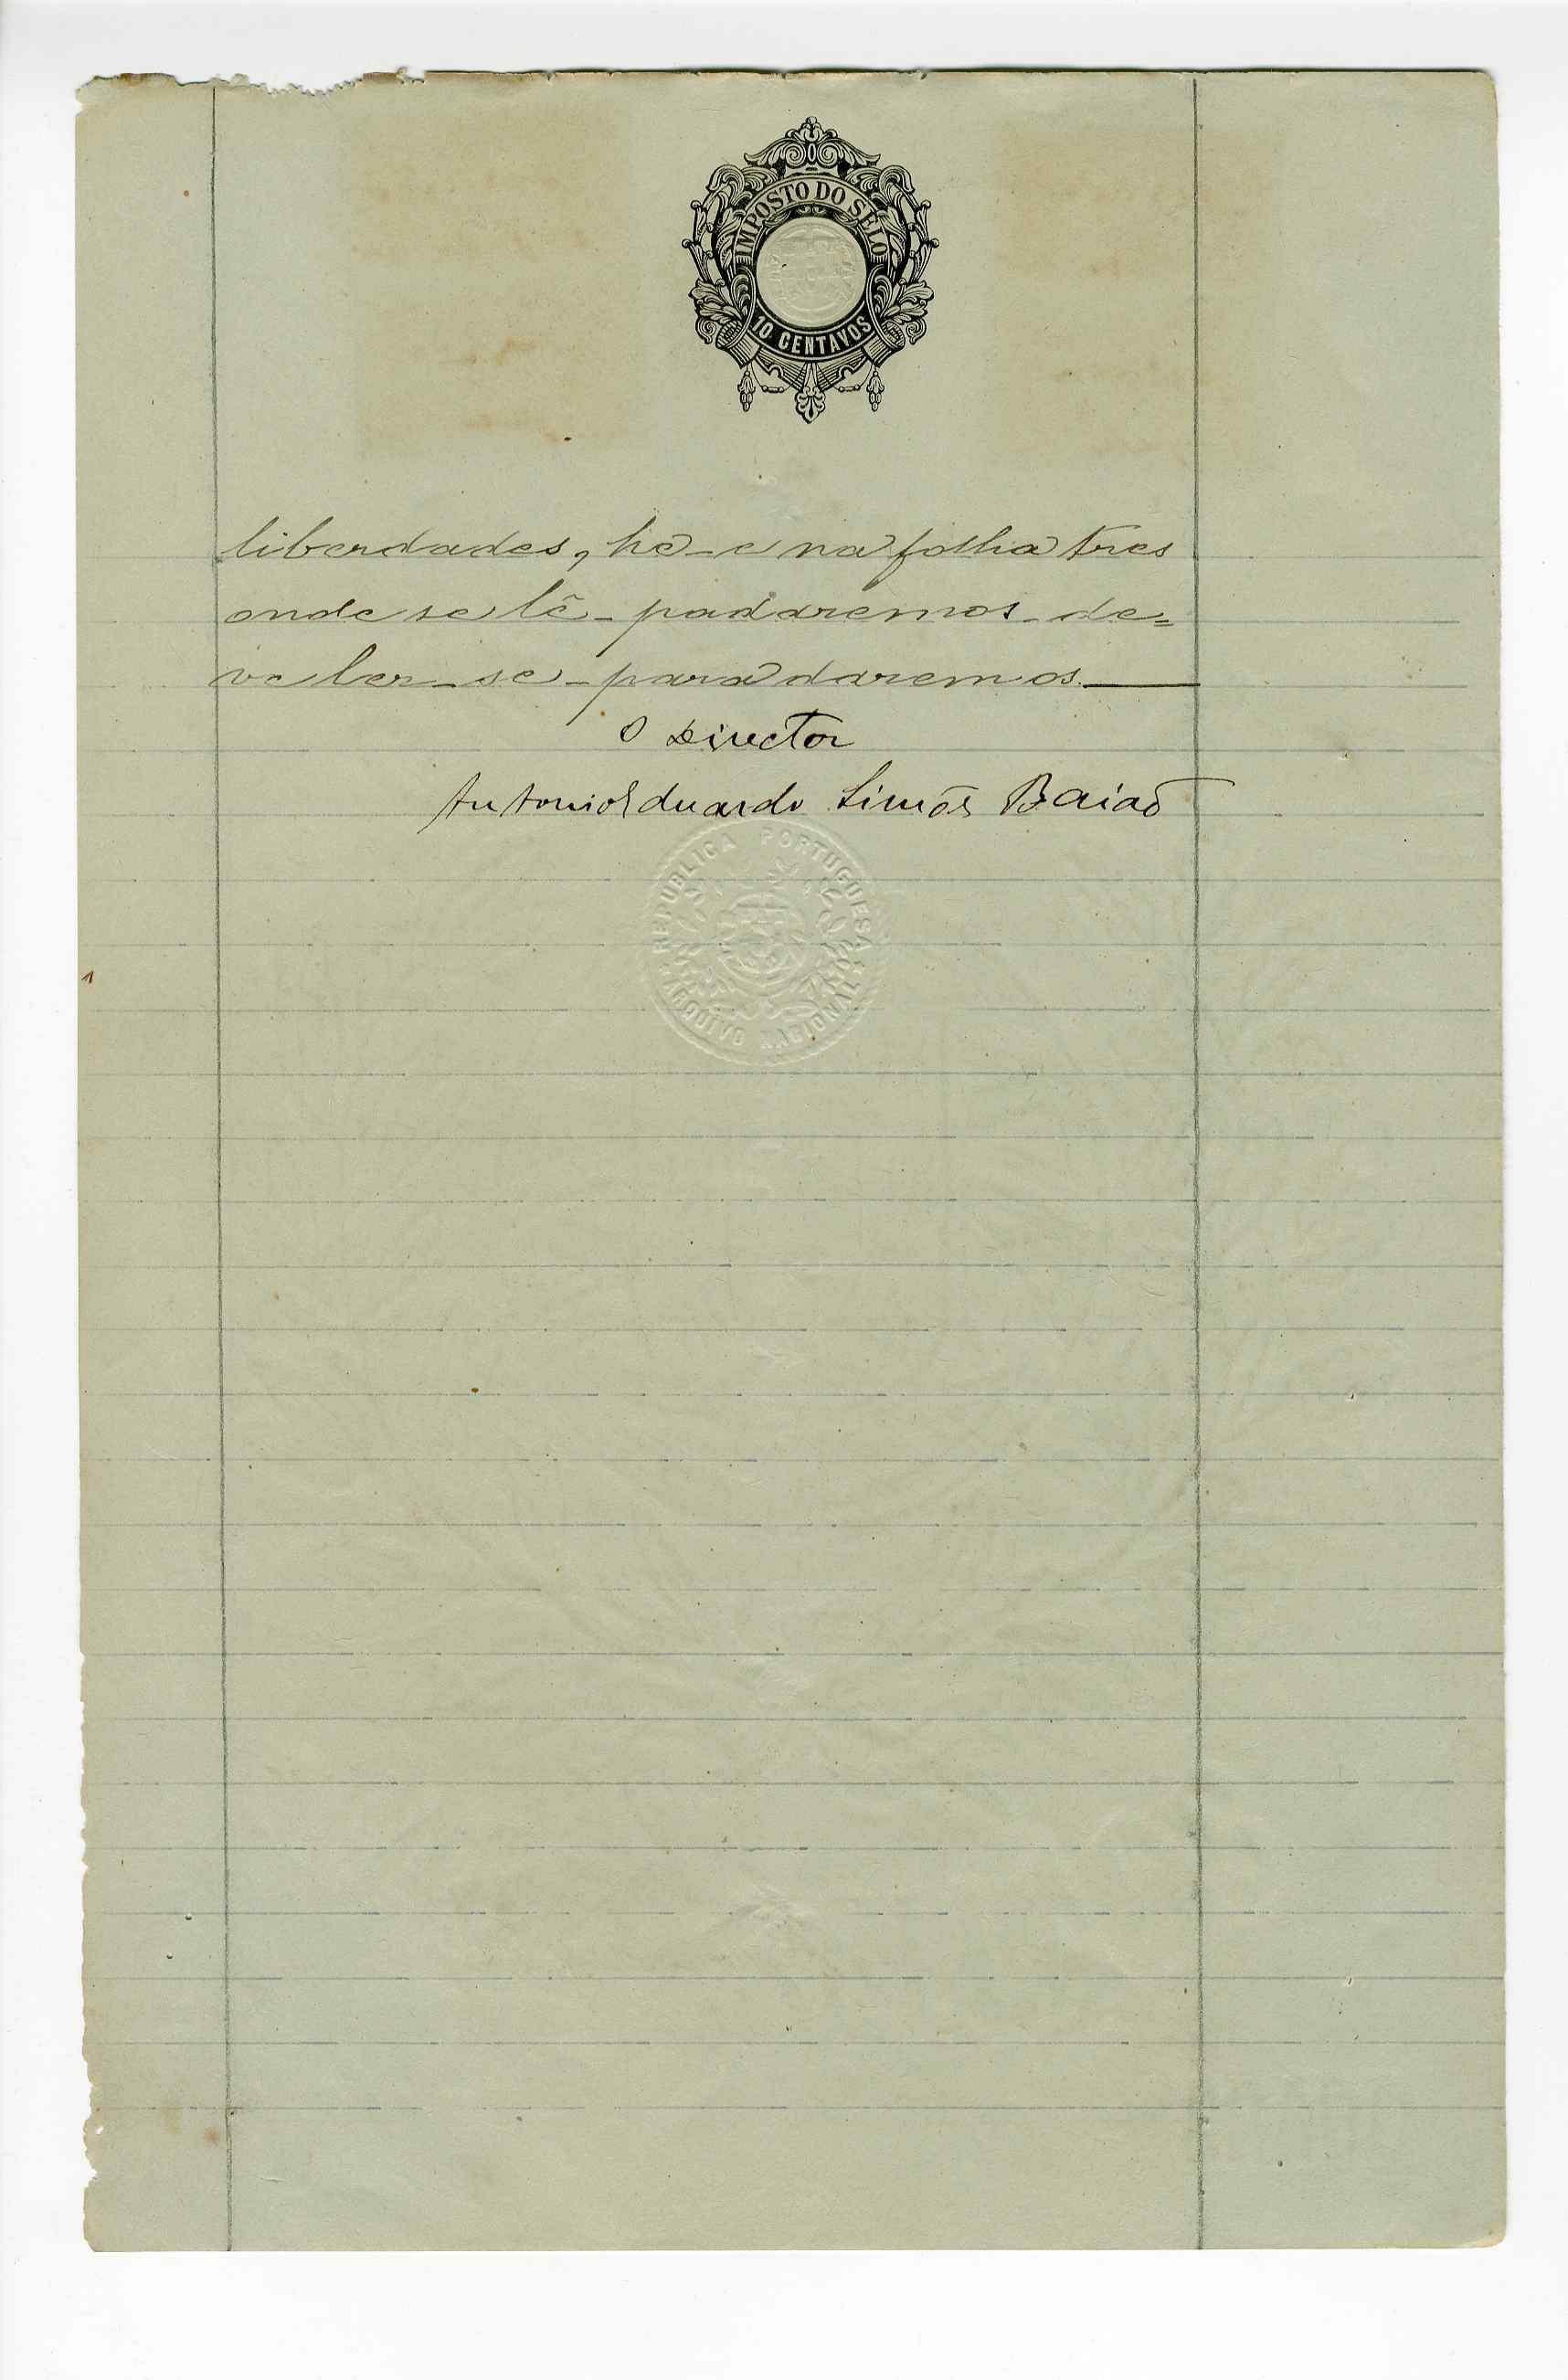 IMPOSTO DO SÊLO
10 CENTAVOS
liberdades, he - e na folha tres
onde se lê - padaremos - de=
ve ler - se - para daremos.
O Director
Antonio Eduardo Simões Baião
REPUBLICA PORTUGUESA
ARQUIVO NACIONAL